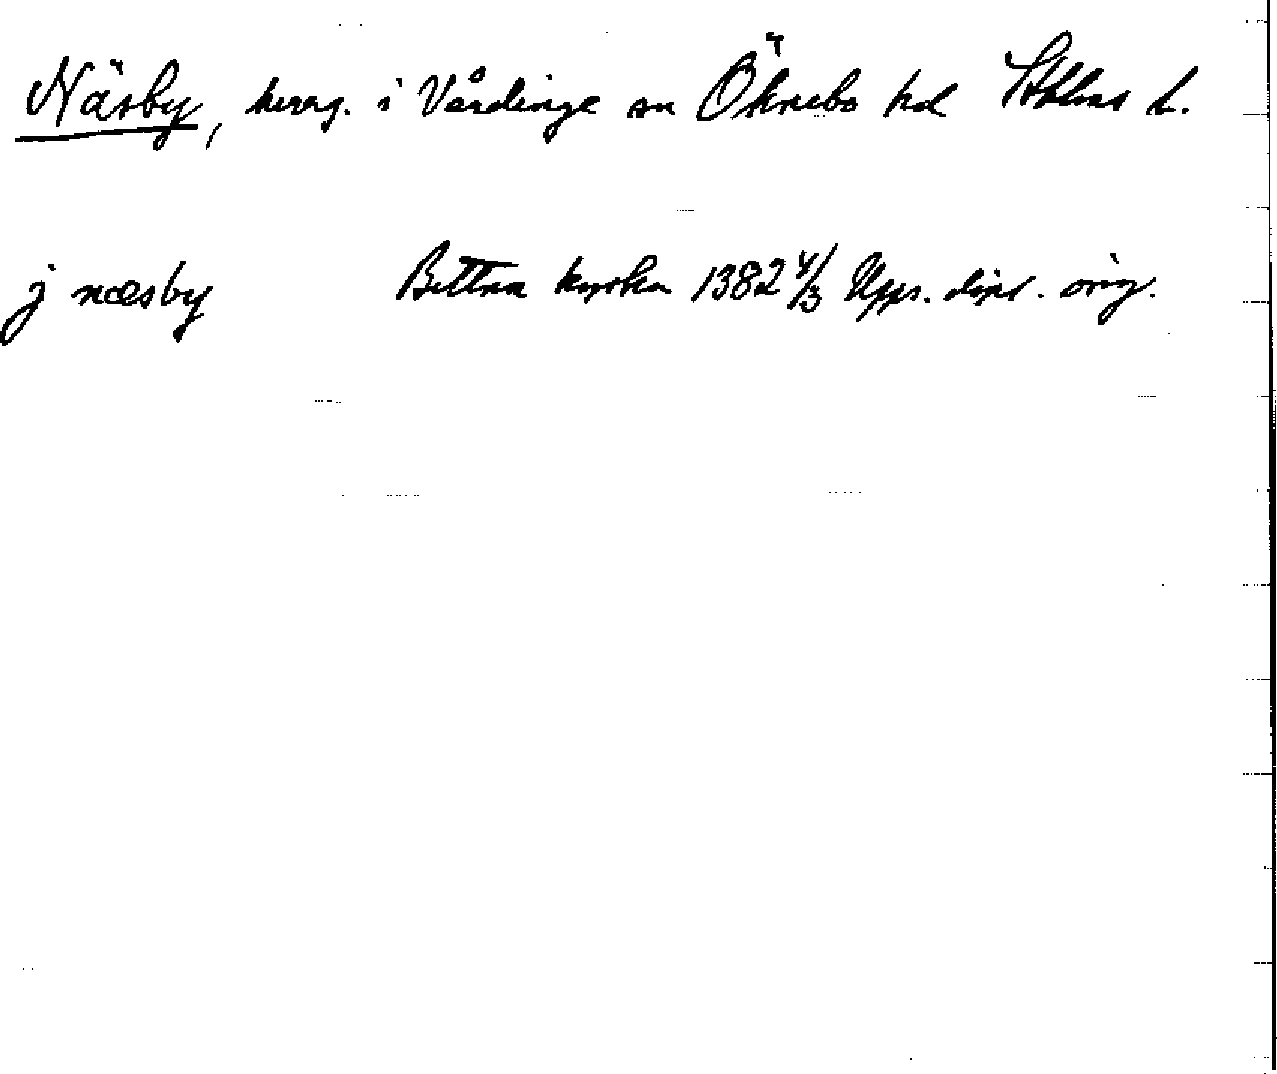 Näsby, herrg. i Vårdinge sn Öknebo hd Sthlms l.
j næsby Bettna kyrka 1382 4/3 Upps. dipl. orig.